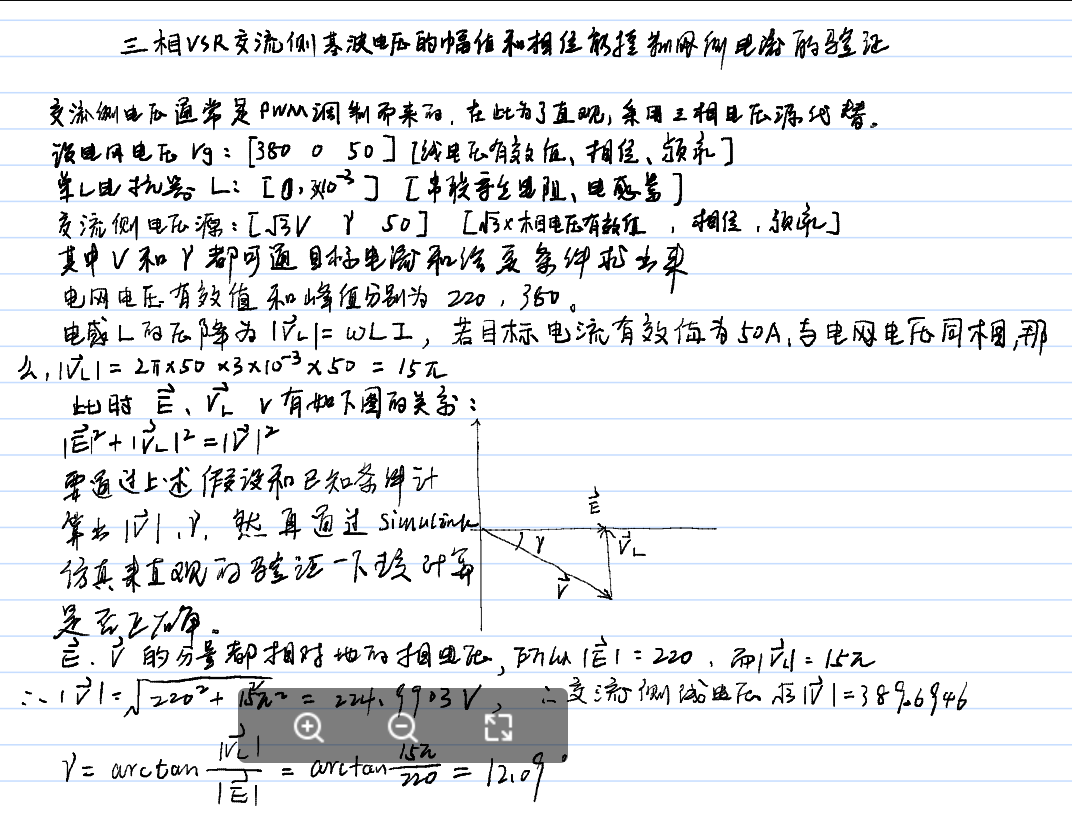 三相VSR交流侧基波电压的幅值和相位能控制网侧电流的验证
交流侧电压通常是PWM调制而来的,在此为了直观,采用三相电压源代替。
设电网电压 Vg: [380 0 50] [线电压有效值、相位、频率]
单L电抗器 L: [0, 3×10⁻³] [串联寄生电阻、电感量]
交流侧电压源: [√3V γ 50] [√3×相电压有效值, 相位, 频率]
其中V和γ都可通目标电流和给定条件求出来
电网电压有效值和峰值分别为 220, 380。
电感L的压降为 |V⃗L| = ωLI, 若目标电流有效值为50A,与电网电压同相,那
么, |V⃗L| = 2π×50×3×10⁻³×50 = 15π
此时 E⃗、V⃗L V有如下图的关系:
|E⃗|²+|V⃗L|²=|V⃗|²
要通过上述假设和已知条件计
算出 |V⃗|, γ, 然再通过 Simulink
仿真来直观的验证一下我计算
是否正确。
E⃗
γ
V⃗L
V⃗
E⃗、V⃗ 的分量都相对地的相电压, 所以 |E⃗|=220, 而|V⃗L|=15π
∴ |V⃗| = √220²+15π² = 224.9903V, ∴ 交流侧线电压 √3|V⃗|=389.6946
γ = arctan |V⃗L| / |E⃗| = arctan 15π / 220 = 12.09°